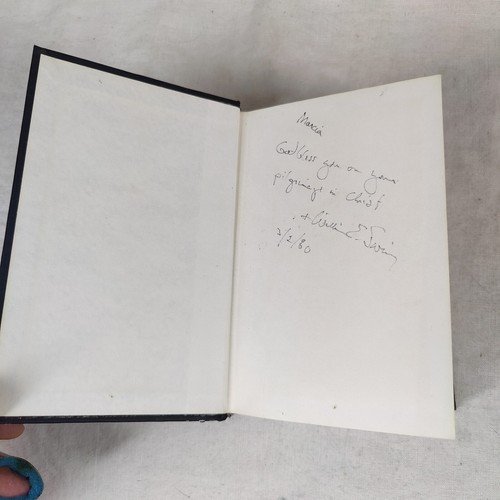 Marcia
God bless you on your
pilgrimage in Christ
+ William E. Swing
2/2/80